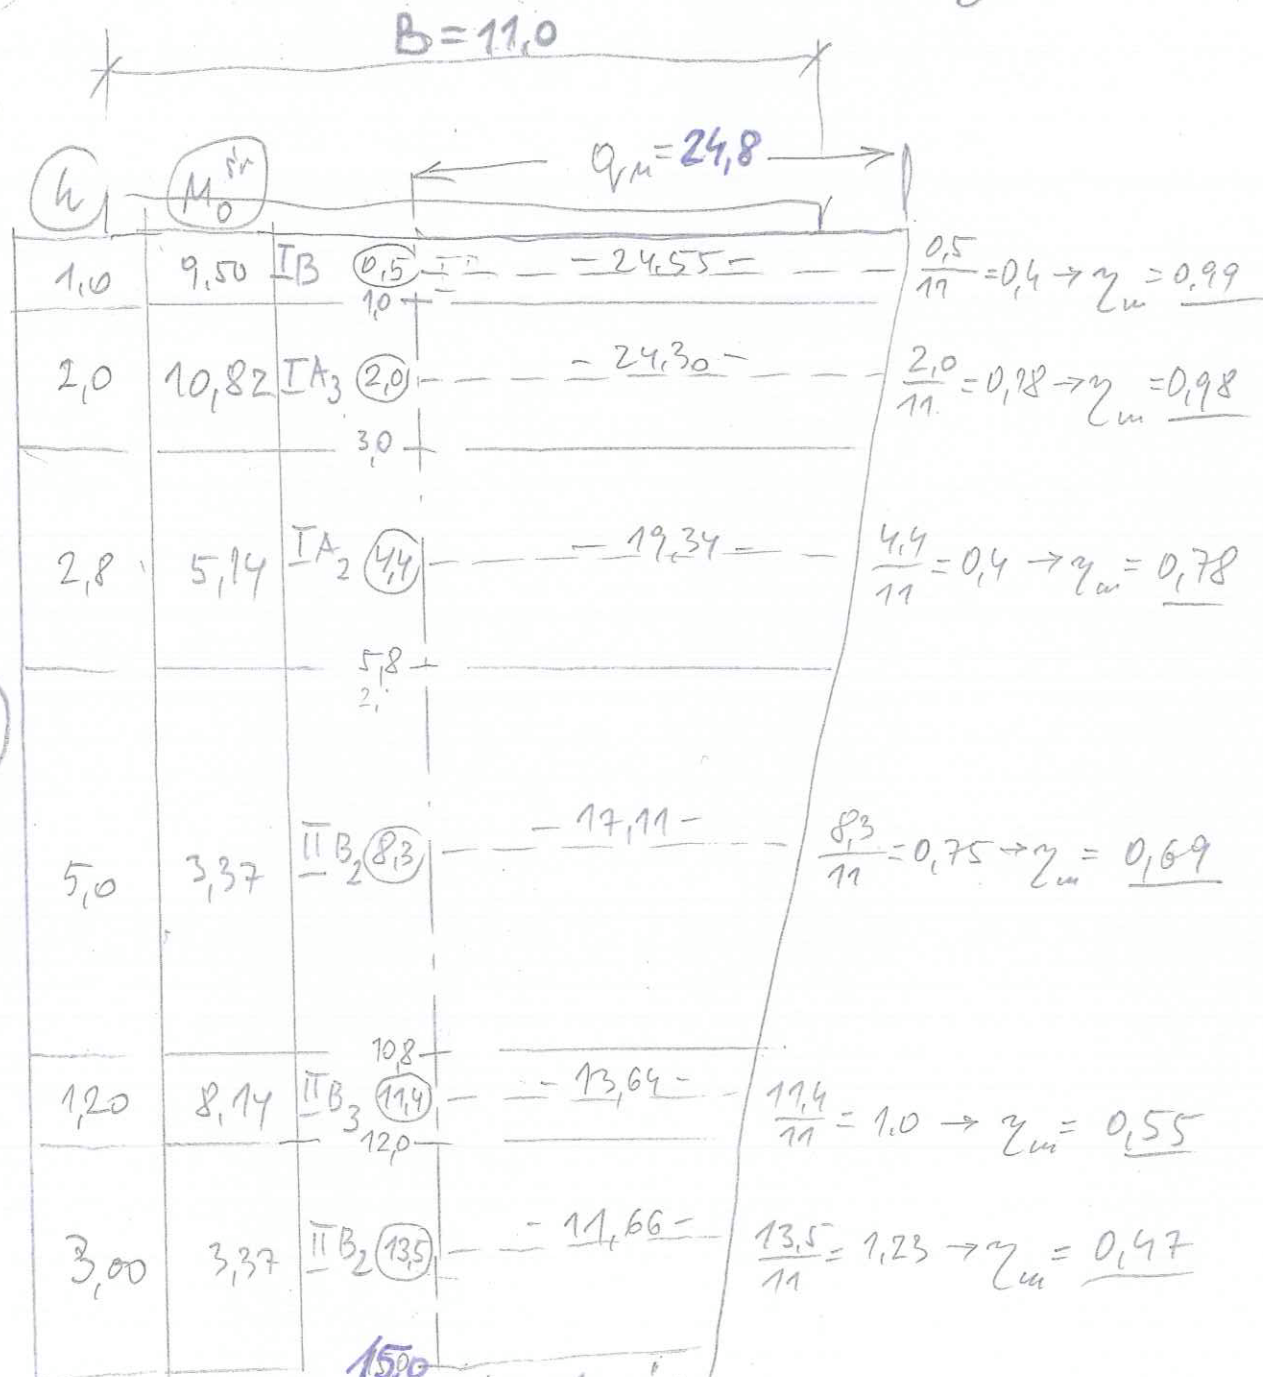 B = 11,0
qm = 24,8
h M₀ śr
1,0 9,50 IB 0,5 - 24,55 - 0,5/11 = 0,4 → ηm = 0,99
1,0
2,0 10,82 IA₃ 2,0 - 24,30 - 2,0/11 = 0,18 → ηm = 0,98
3,0
2,8 5,14 IA₂ 4,4 - 19,34 - 4,4/11 = 0,4 → ηm = 0,78
5,8
2,
5,0 3,37 IIB₂ 8,3 - 17,11 - 8,3/11 = 0,75 → ηm = 0,69
10,8
1,20 8,14 IIB₃ 11,4 - 13,64 - 11,4/11 = 1,0 → ηm = 0,55
12,0
3,00 3,37 IIB₂ 13,5 - 11,66 - 13,5/11 = 1,23 → ηm = 0,47
15,0